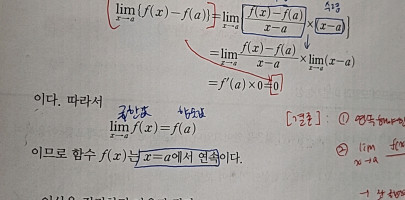 수렴
lim_{x→a}{f(x)−f(a)}=lim_{x→a}[f(x)−f(a)/x−a × (x−a)]
=lim_{x→a} f(x)−f(a)/x−a × lim_{x→a}(x−a)
=f′(a)×0=0
이다. 따라서
극한값 함숫값
lim_{x→a} f(x)=f(a)
[결론] : ①
이므로 함수 f(x)는 x=a에서 연속이다.
② lim_{x→a}